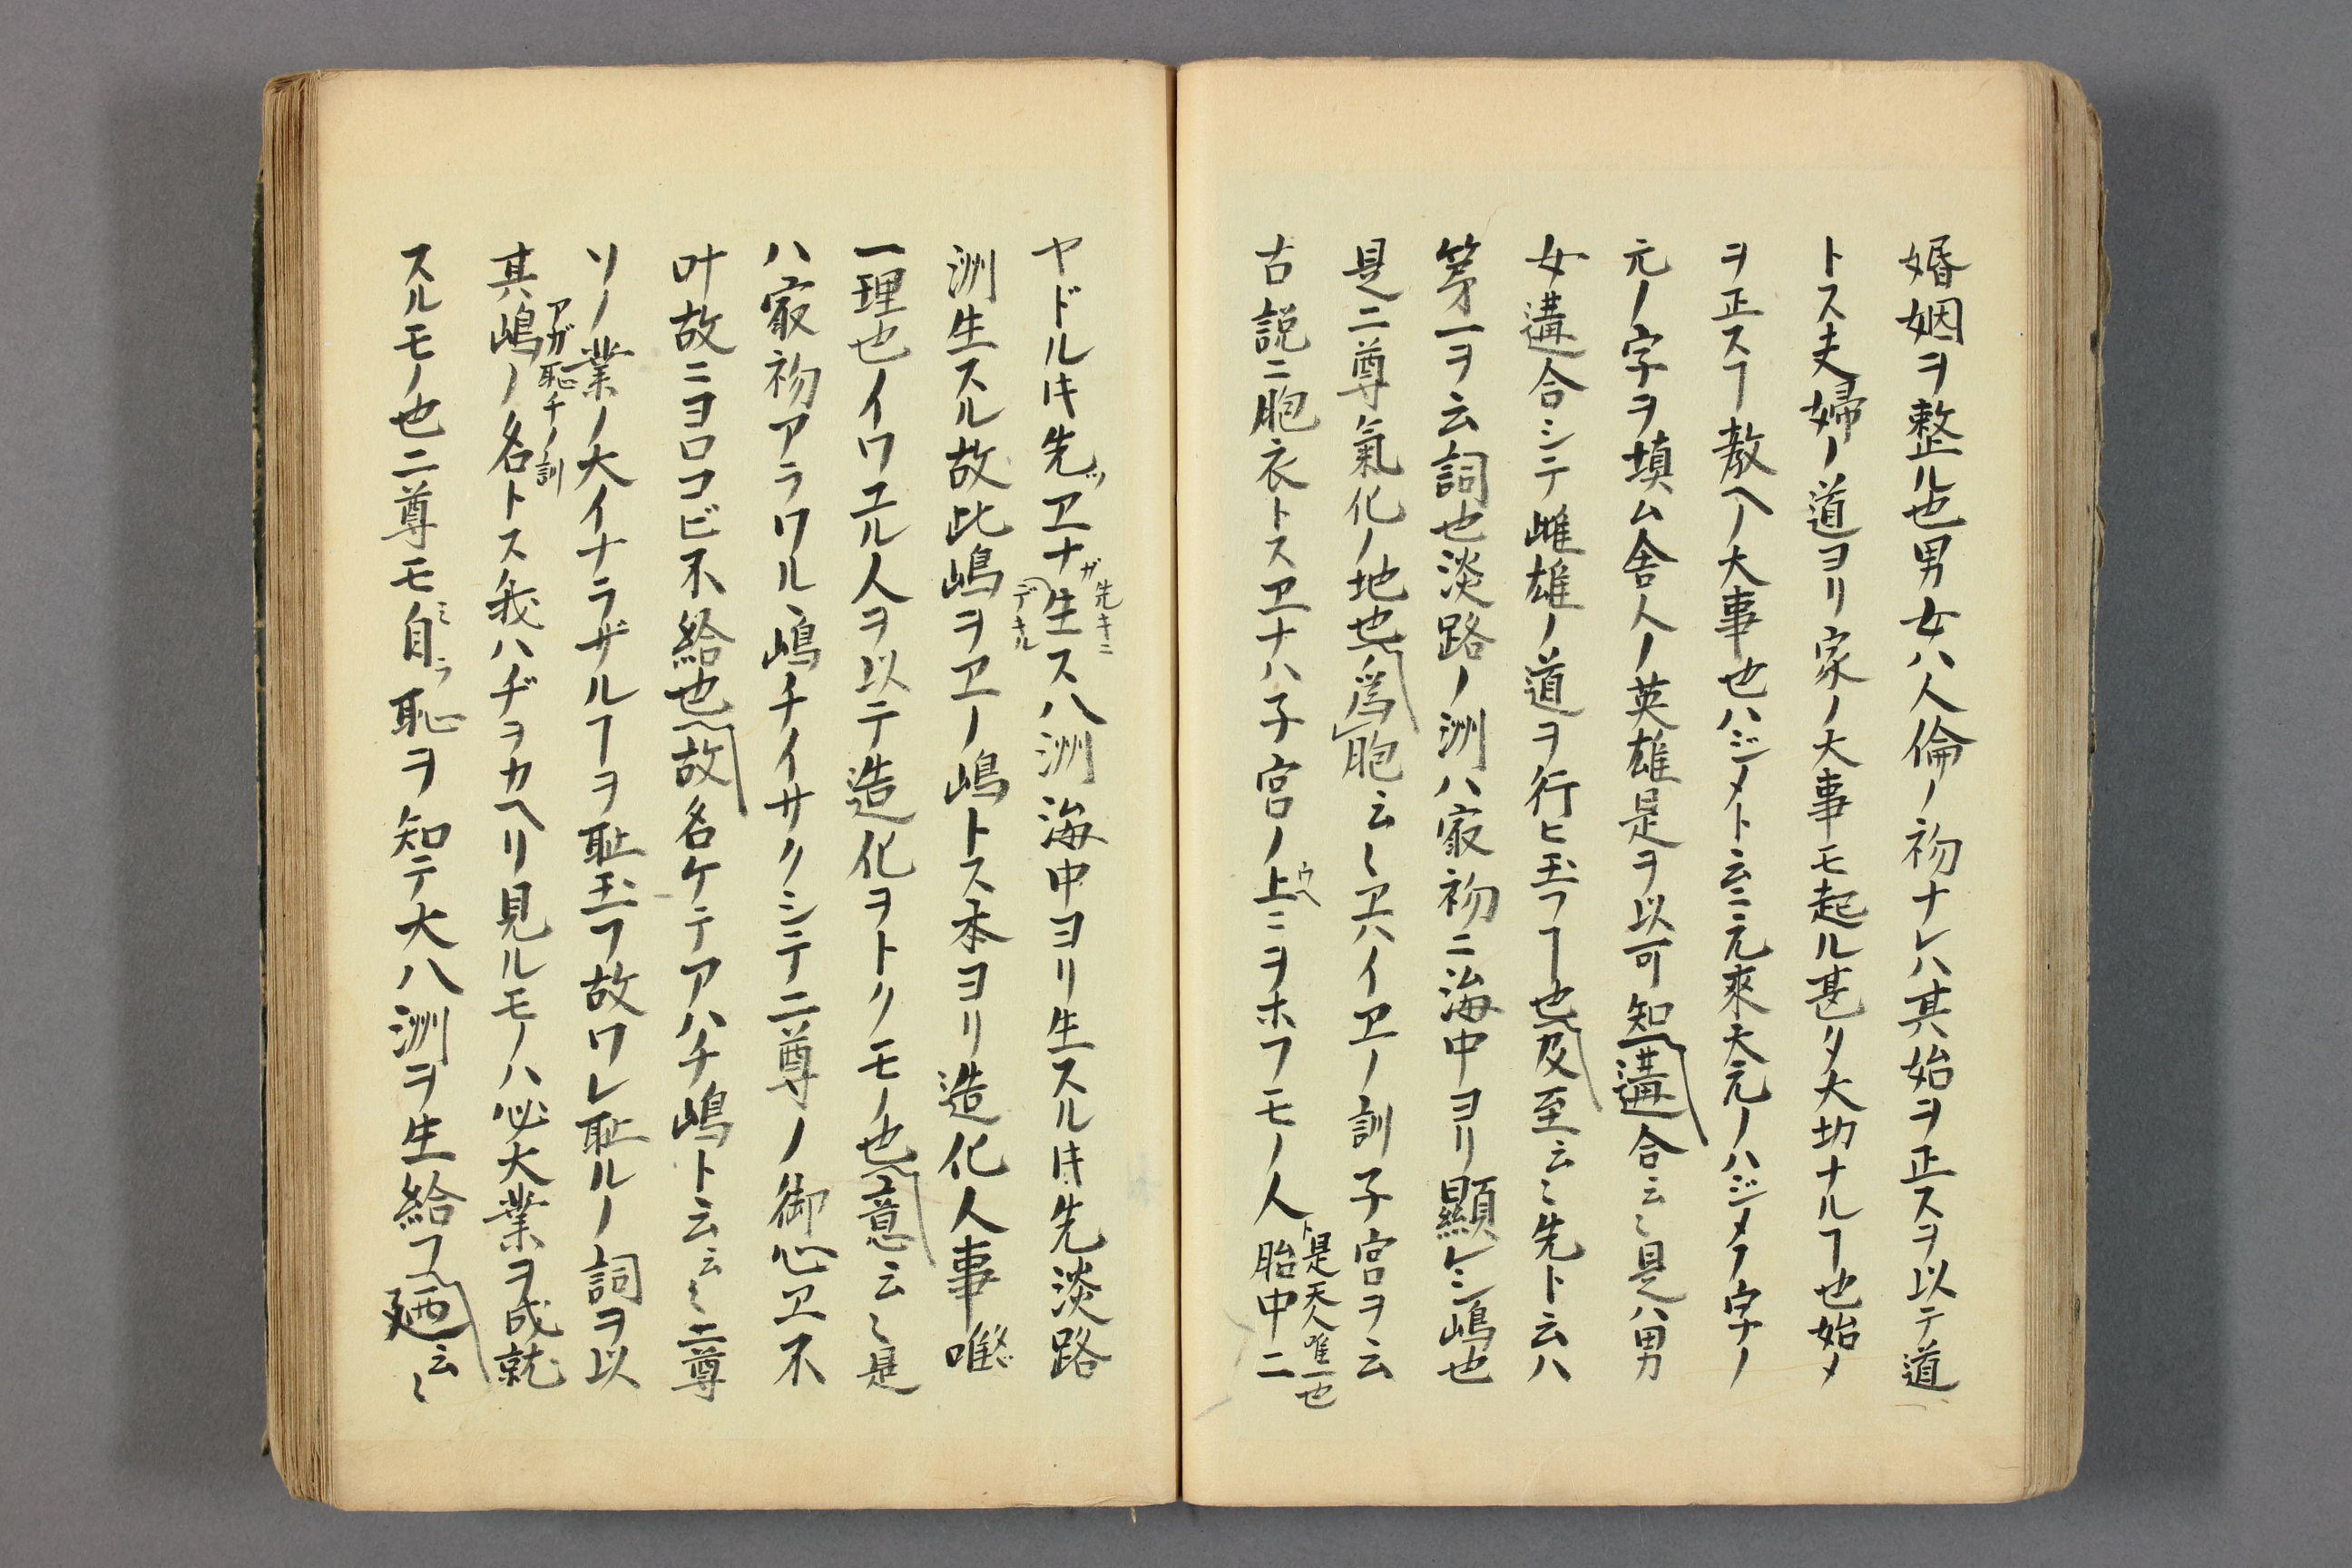 婚姻ヲ整ル也男女ハ人倫ノ初ナレハ其始ヲ正スヲ以テ道
トス夫婦ノ道ヨリ家ノ大事モ起ル甚タ大切ナルヿ也始メ
ヲ正スヿ教ヘノ大事也ハジメト云ニ元來天元ノハジメノ字ナノ
元ノ字ヲ填ム舎人ノ英雄是ヲ以可知遘合云〻是ハ男
女遘合シテ雌雄ノ道ヲ行ヒ玉フヿ也及至云〻先ト云ハ
第一ヲ云詞也淡路ノ洲ハ冣初ニ海中ヨリ顯レシ嶋也
是二尊氣化ノ地也為胞云〻ヱハイヱノ訓子宮ヲ云
古説ニ胞衣トスヱナハ子宮ノ上ウヘニヲホフモノ人胎中ニ
ト是天人唯一也
ヤドル𪜈先ッヱナガ生ス八洲海中ヨリ生スル𪜈先淡路
先キニ
デキル
洲生スル故此嶋ヲヱノ嶋トス本ヨリ造化人事唯
一理也イワユル人ヲ以テ造化ヲトクモノ也意云〻是
ハ冣初アラワルヽ嶋チイサクシテ二尊ノ御心ヱ不
叶故ニヨロコビ不給也故名ケテアハチ嶋ト云云〻二尊
ソノ業ノ大イナラザルヿヲ恥玉フ故ワレ恥ルノ詞ヲ以
アガ恥チノ訓
其嶋ノ名トス我ハヂヲカヘリ見ルモノハ必大業ヲ成就
スルモノ也二尊モ自ミラ恥ヲ知テ大八洲ヲ生給フ廼云〻